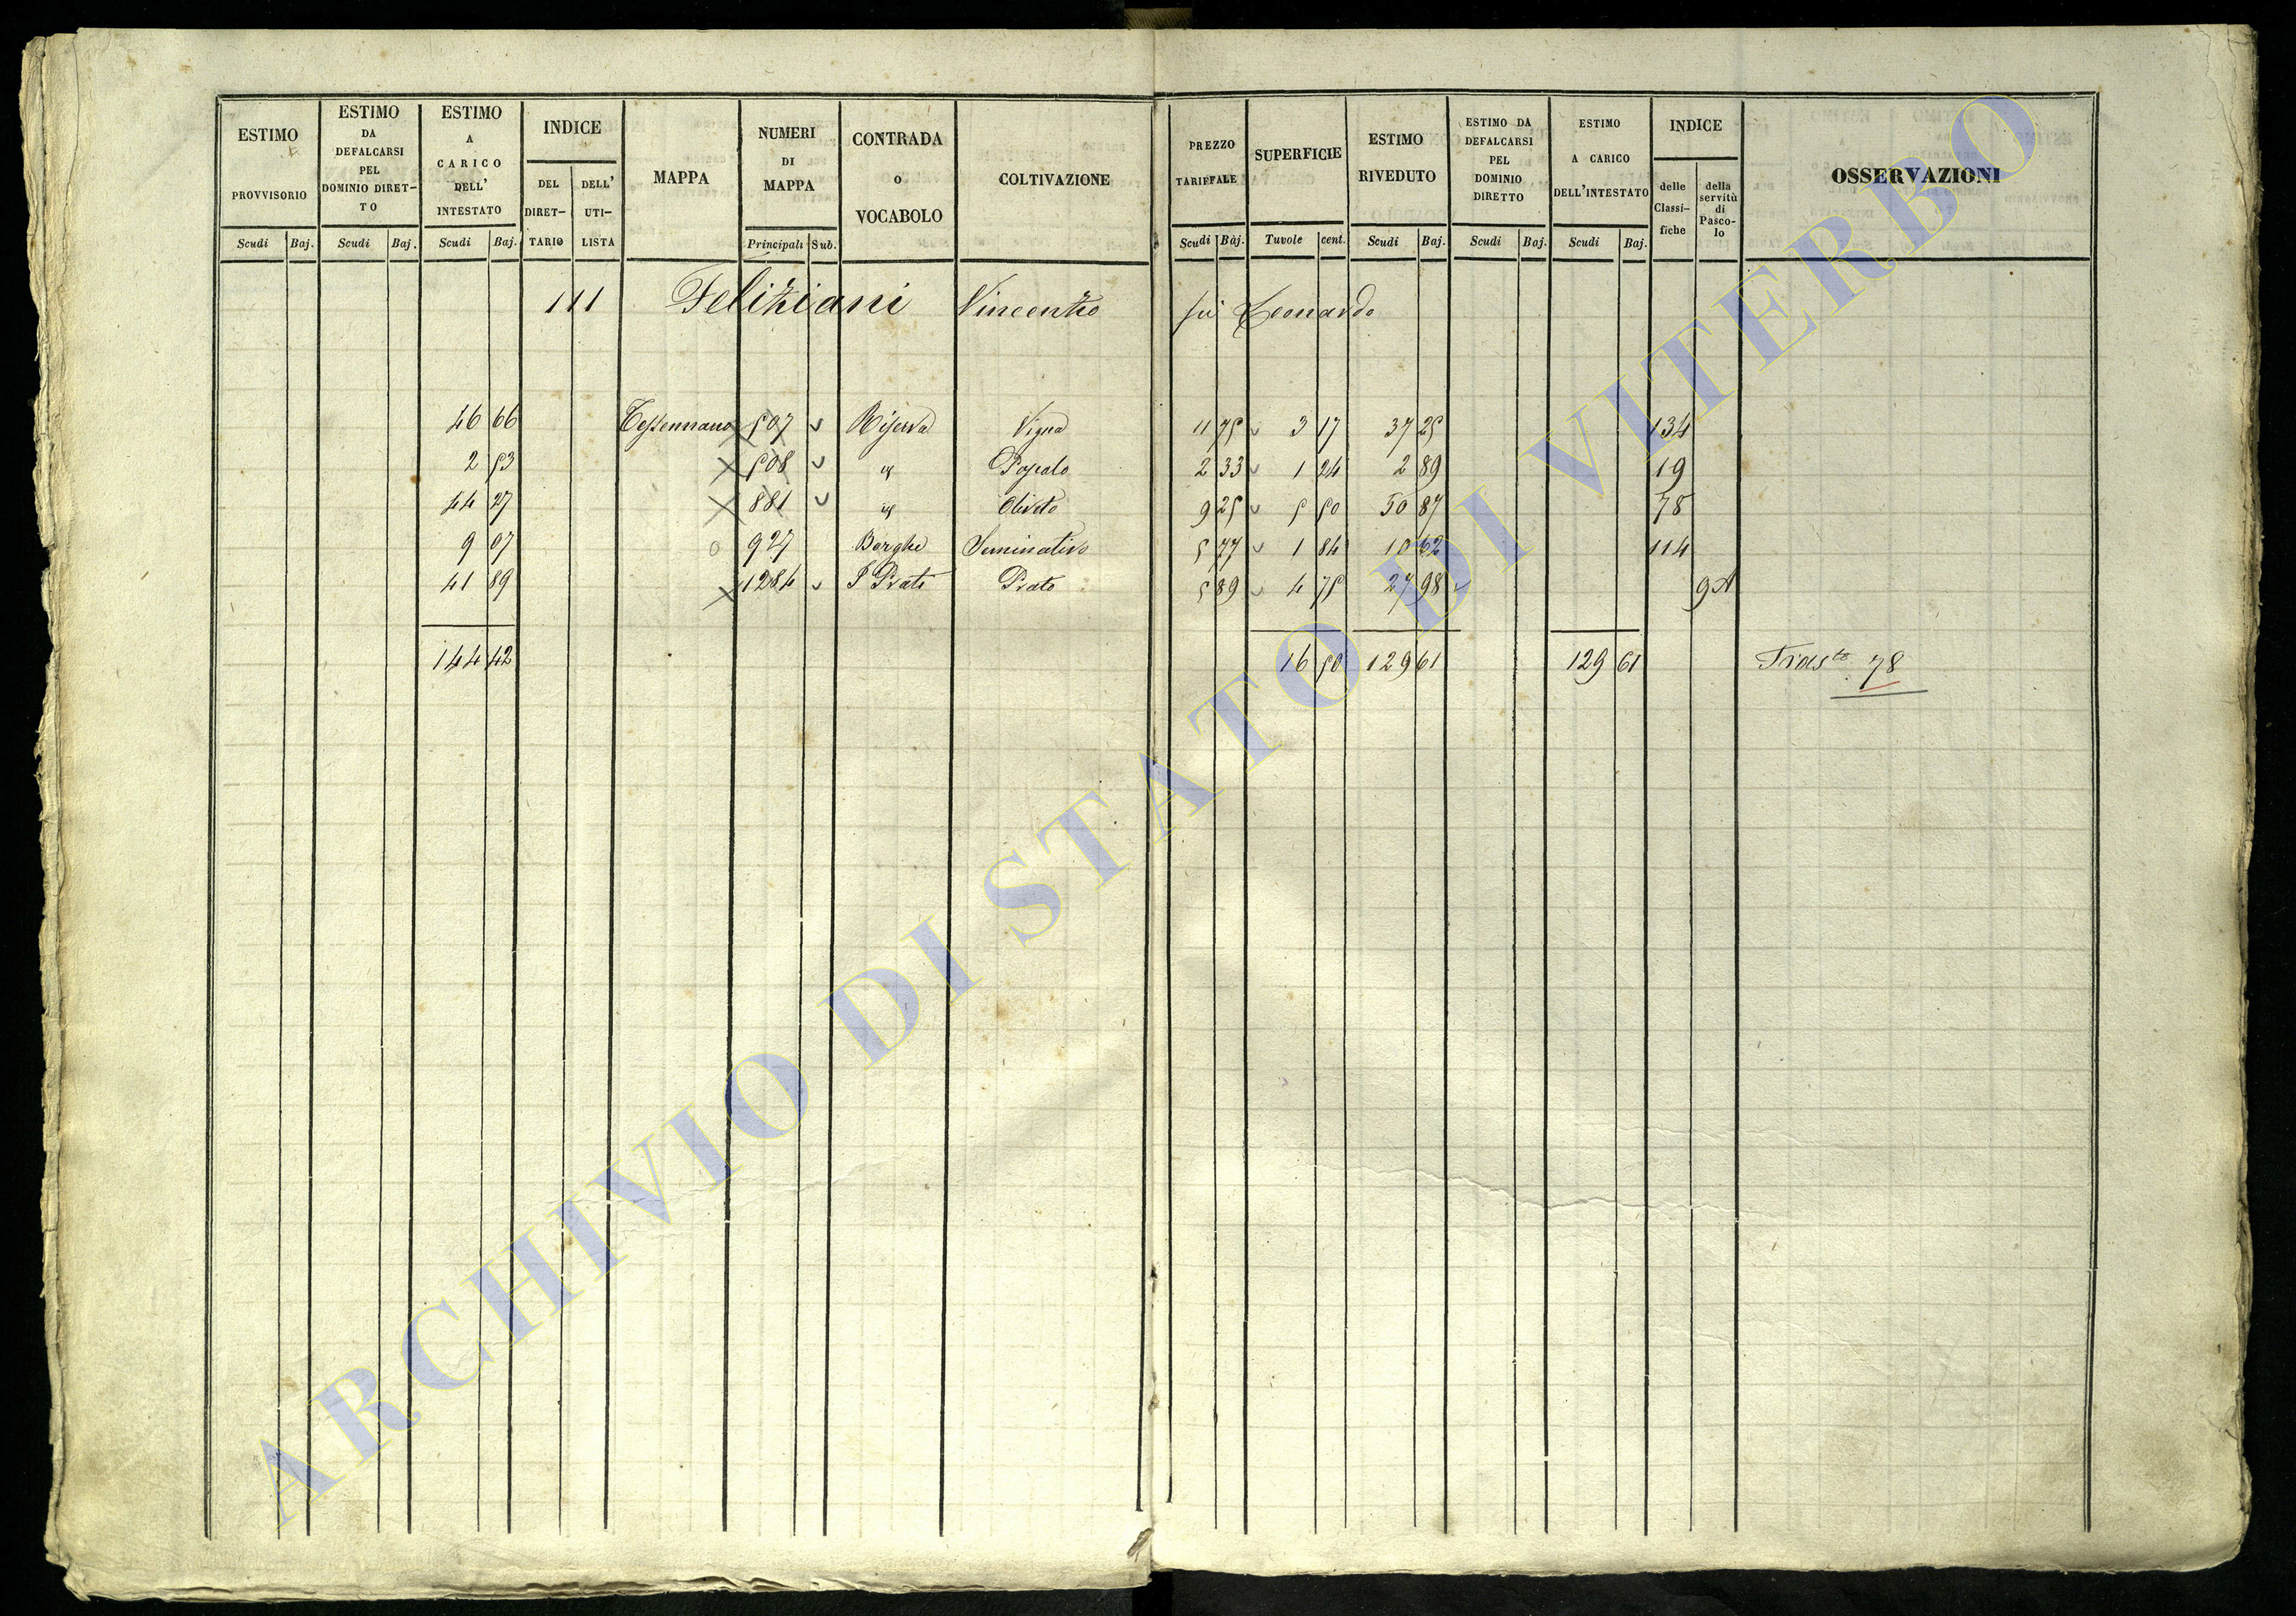 ESTIMO PROVVISORIO Scudi Baj.
ESTIMO DA DEFALCARSI PEL DOMINIO DIRET-TO Scudi Baj.
ESTIMO A CARICO DELL' INTESTATO Scudi Baj.
INDICE DEL DIRET-TARIO DELL' UTI-LISTA
MAPPA
NUMERI DI MAPPA Principali Sub.
CONTRADA O VOCABOLO
COLTIVAZIONE
PREZZO TARIFFALE Scudi Baj.
SUPERFICIE Tavole cent.
ESTIMO RIVEDUTO Scudi Baj.
ESTIMO DA DEFALCARSI PEL DOMINIO DIRETTO Scudi Baj.
ESTIMO A CARICO DELL'INTESTATO Scudi Baj.
INDICE delle Classi-fiche della servitù di Pasco-lo
OSSERVAZIONI
111 Feliziani Vincenzo fu Leonardo
46 66 Tessennano 507 Riserva Vigna 11 75 3 17 37 25 134
2 53 508 id Pascolo 2 33 1 24 2 89 19
44 27 881 id Oliveto 9 25 5 50 50 87 78
9 07 927 Borghi Seminativo 5 77 1 84 10 62 114
41 89 1284 Prati Prato 5 89 4 75 27 98 9A
144 42 16 50 129 61 129 61 78
ARCHIVIO DI STATO DI VITERBO